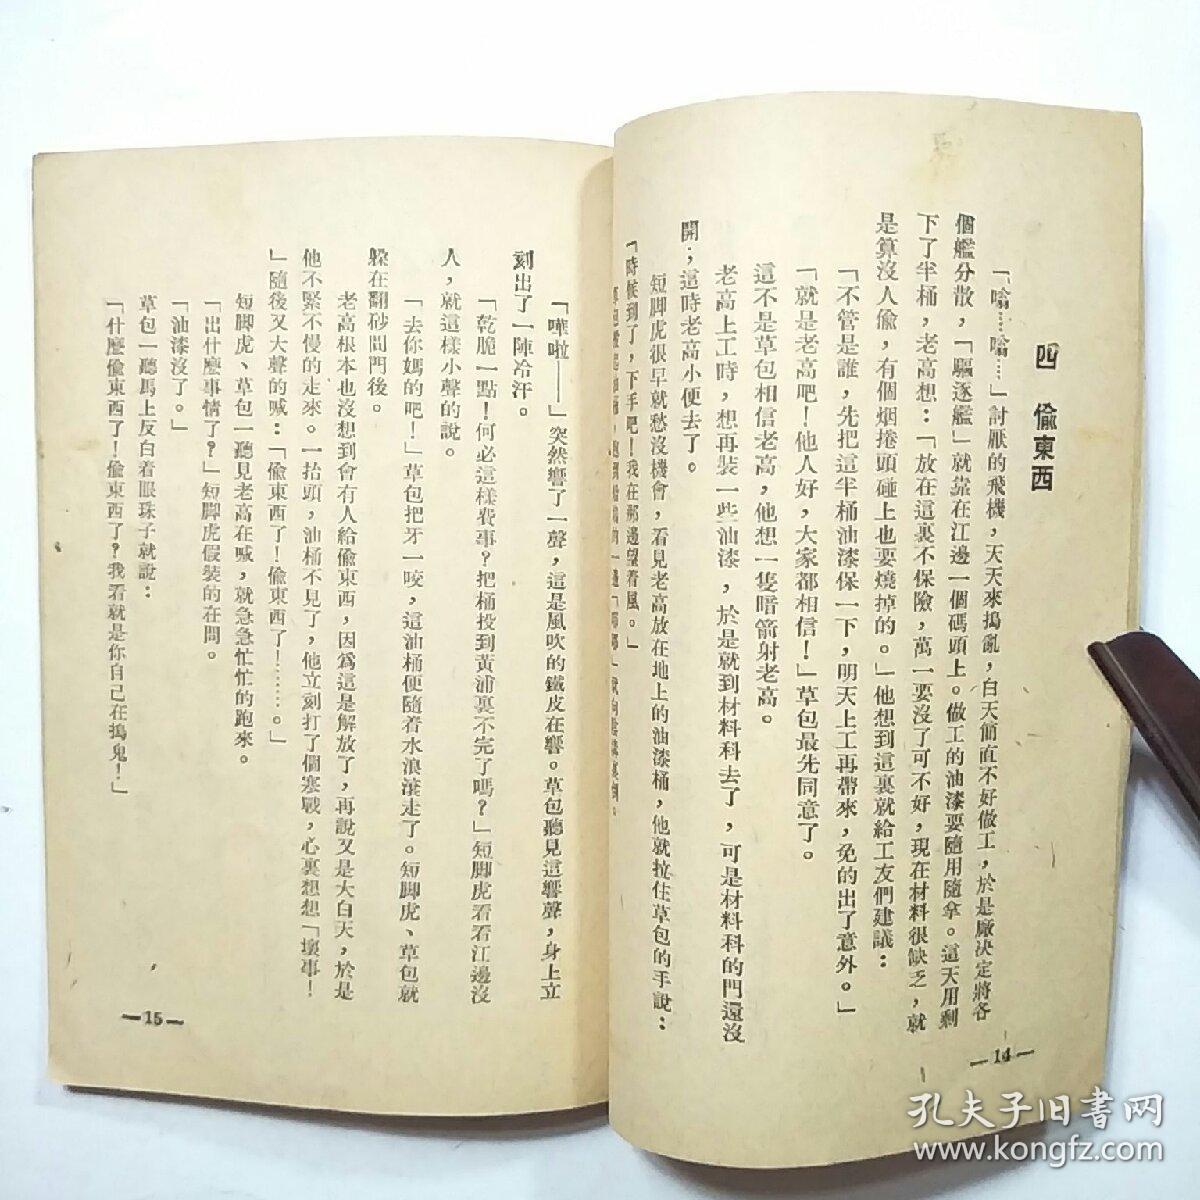 四　偷東西
「嗡……嗡……」討厭的飛機，天天來搗亂，白天簡直不好做工，於是廠決定將各
個艦分散，「驅逐艦」就靠在江邊一個碼頭上。做工的油漆要隨用隨拿。這天用剩
下了半桶，老高想：「放在這裏不保險，萬一要沒了可不好，現在材料很缺乏，就
是算沒人偷，有個烟捲頭碰上也要燒掉的。」他想到這裏就給工友們建議：
「不管是誰，先把這半桶油漆保一下，明天上工再帶來，免的出了意外。」
「就是老高吧！他人好，大家都相信！」草包最先同意了。
這不是草包相信老高，他想一隻暗箭射老高。
老高上工時，想再裝一些油漆，於是就到材料科去了，可是材料科的門還沒
開；這時老高小便去了。
短脚虎很早就愁沒機會，看見老高放在地上的油漆桶，他就拉住草包的手說：
「時候到了，下手吧！我在那邊望着風。」
—14—
「嘩啦——」突然響了一聲，這是風吹的鐵皮在響。草包聽見這響聲，身上立
刻出了一陣冷汗。
「乾脆一點！何必這樣費事？把桶投到黃浦裏不完了嗎？」短脚虎看看江邊沒
人，就這樣小聲的說。
「去你媽的吧！」草包把牙一咬，這油桶便隨着水浪滾走了。短脚虎、草包就
躲在翻砂間門後。
老高根本也沒想到會有人給偷東西，因爲這是解放了，再說又是大白天，於是
他不緊不慢的走來。一抬頭，油桶不見了，他立刻打了個寒戰，心裏想想「壞事！
」隨後又大聲的喊：「偷東西了！偷東西了！………。」
短脚虎、草包一聽見老高在喊，就急急忙忙的跑來。
「出什麼事情了？」短脚虎假裝的在問。
「油漆沒了。」
草包一聽馬上反白着眼珠子就說：
「什麼偷東西了！偷東西了？我看就是你自己在搗鬼！」
—15—
孔夫子旧书网
www.kongfz.com